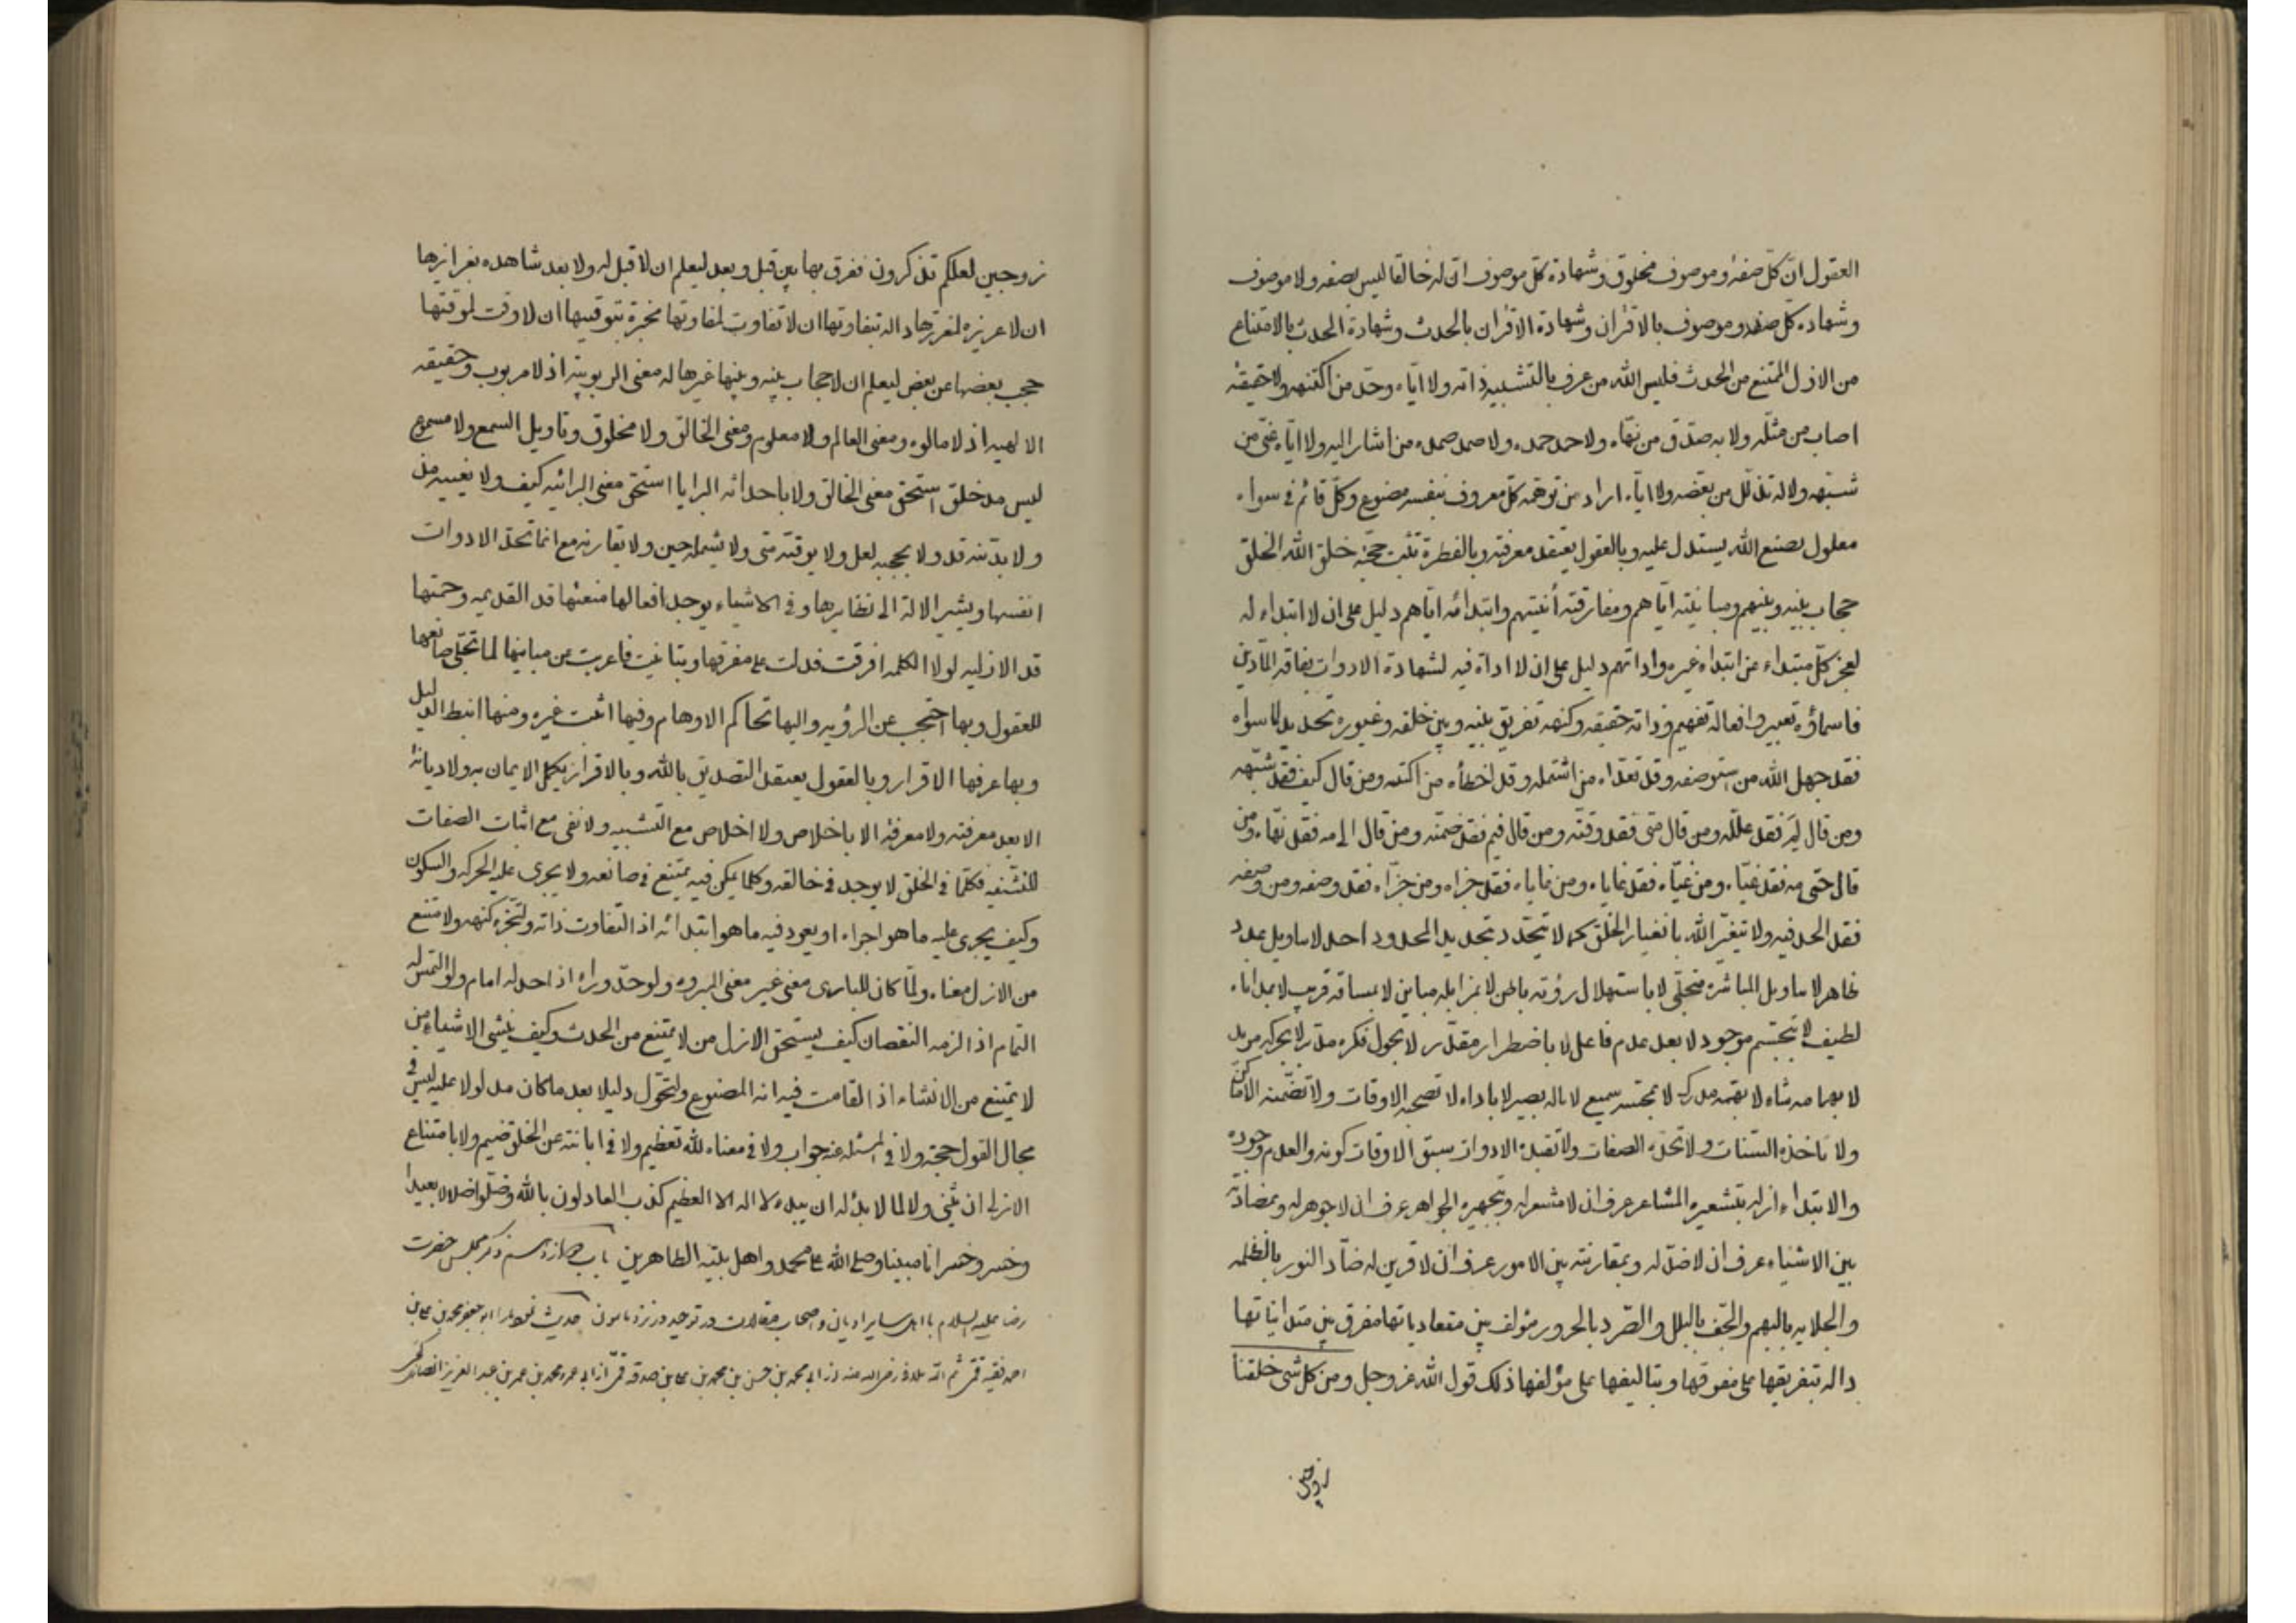 العقول ان كلّ صفة وموصوف مخلوق وشهادة كلّ موصوف انّ له خالقا ليس بصفه ولا موصوف
وشهادة كلّ صفه وموصوف بالاقتران وشهادة الاقتران بالحدث وشهادة الحدث بالامتناع
من الازل الممتنع من الحدث فليس الله من عرف بالتشبيه ذاته ولا ايّاه وحّد من اكتنهه ولا حقيقته
اصاب من مثّله ولا به صدّق من نهّاه ولا صمد صمده من اشار اليه ولا ايّاه عنى من
شبّهه ولا له تذلّل من بعّضه ولا ايّاه اراد من توهّمه كلّ معروف بنفسه مصنوع وكلّ قائم فى سواه
معلول بصنع الله يستدل عليه وبالعقول يعتقد معرفته وبالفطرة تثبت حجّته خلق الله الخلق
حجاب بينه وبينهم ومباينته ايّاهم ومفارقته أنيتهم وابتدائه ايّاهم دليل على ان لا ابتداء له
لعجز كلّ مبتداء عن ابتداء غيره واداتهم دليل على ان لا اداة فيه لشهادة الادوات بفاقه المادّين
فاسماؤه تعبير وافعاله تفهيم وذاته حقيقه وكنهه تفريق بينه وبين خلقه وغيوره تحديد لما سواه
فقد جهل الله من استوصفه وقد تعدّاه من اشتمله وقد اخطأه من اكتنه ومن قال كيف فقد شبّهه
ومن قال لِمَ فقد علّله ومن قال متى فقد وقّته ومن قال فيم فقد ضمّنه ومن قال الى مه فقد نهّاه ومن
قال حتى مه فقد غيّاه ومن غيّاه فقد غاياه ومن غاياه فقد جزّاه ومن جزّاه فقد وصفه ومن وصفه
فقد الحد فيه ولا تيغيّر الله بانغيار الخلق كما لا يتحدّد بتحديد المحدود احد لا بتاويل عدد
ظاهر لا بتاويل المباشره متجلّى لا باستهلال رؤيه باطن لا بمزايله مباين لا بمسافه قريب لا بمداناه
لطيف لا بتجسّم موجود لا بعد عدم فاعل لا باضطرار مقدّر لا بحول فكره مدبّر لا بحركه مريد
لا بهمامه شاء لا بهمّه مدرك لا بمجسّه سميع لا باله بصير لا باداه لا تصحبه الاوقات ولا تضمّنه الاماكن
ولا تاخذه السّنات ولا تحدّه الصفات ولا تقيده الادوات سبق الاوقات كونه والعدم وجوده
والابتداء ازله بتشعيره المشاعر عرف ان لا مشعر له وبتجهيره الجواهر عرف ان لا جوهر له وبمضادّته
بين الاشياء عرف ان لا ضدّ له وبمقارنته بين الامور عرف ان لا قرين له ضادّ النور بالظلمه
والجلايه بالبهم والجّف بالبلل والصّرد بالحرور مؤلف بين متعادياتها مفرق بين متدانياتها
داله بتفريقها على مفرقها وبتاليفها على مؤلفها ذلك قول الله عز وجل ومن كل شى خلقنا
زوجين
زوجين لعلكم تذكرون ففرق بها بين قبل وبعد ليعلم ان لا قبل له ولا بعد شاهده بغرائزها
ان لا عريزه لمغرزها داله بتفاوتها ان لا تفاوت لمفاوتها مخبرة بتوقيتها ان لا وقت لموقتها
حجب بعضها عن بعض ليعلم ان لا حجاب بينه وبينها غيرها له معنى الربوبيه اذ لا مربوب وحقيقه
الالهيه اذ لا مالوه ومعنى العالم ولا معلوم ومعنى الخالق ولا مخلوق وتاويل السمع ولا مسموع
ليس مذ خلق استحق معنى الخالق ولا باحداثه البرايا استحق معنى البرائيه كيف ولا يغيبه مذ
ولا تدنيه قد ولا يحجبه لعل ولا يوقته متى ولا يشمله حين ولا يقارنه مع انما تحدّ الادوات
انفسها ويشير الالة الى نظايرها وفى الاشياء يوجد افعالها منعتها قد القديمه وحمتها
قد الازليه لولا الكلمه افترقت فدلت على مفرقها وتباينت فاعربت عن مباينها لما تجلّى صانعها
للعقول وبها احتجب عن الرؤيه واليها تحاكم الاوهام وفيها اثبت غيره ومنها انبط الدليل
وبها عرفها الاقرار وبالعقول يعتقد التصديق بالله وبالاقرار يكمل الايمان به ولا ديانة
الا بعد معرفته ولا معرفة الا باخلاص ولا اخلاص مع التشبيه ولا نفى مع اثبات الصفات
للتشبيه فكلّما فى الخلق لا يوجد فى خالقه وكلما يمكن فيه يمتنع فى صانعه ولا يجرى عليه الحركه والسكون
وكيف يجرى عليه ما هو اجراه او يعود فيه ما هو ابتدائه اذا التفاوت ذاته ولتجزّه كنهه ولامتنع
من الازل معناه ولمّا كان للبارى معنى غير معنى المبروه ولو حدّ وراه اذا حدّ له امام ولو التمس له
التمام اذا لزمه النقصان كيف يستحق الازل من لا يمتنع من الحدث وكيف ينشى الاشياء من
لا يمتنع من الانشاء اذا لقامت فيه انه المصنوع ولتحوّل دليلا بعد ما كان مدلولا عليه ليس فى
مجال القول حجّه ولا فى المسئله عنه جواب ولا فى معناه لله تعظيم ولا فى ابانته عن الخلق ضيم ولا بامتناع
الازلى ان يثنى ولا لما لا بدئ له ان يبدء لا اله الا العظيم كذب العادلون بالله وضلّوا ضلالا بعيدا
وخسروا خسرانا مبينا وصلى الله على محمد واهل بيته الطاهرين باب دوازدهم ذكر مجلس حضرت
رضا عليه السلام با اهل ساير اديان واصحاب مقالات در توحيد در نزد مامون حديث ابو جعفر محمد بن على بن
احمد فقيه قمى ثم رضى الله عنه از ابى محمد بن حسن بن محمد بن على بن صدقه قمى از ابى عمرو محمد بن عمر بن عبد العزيز انصارى